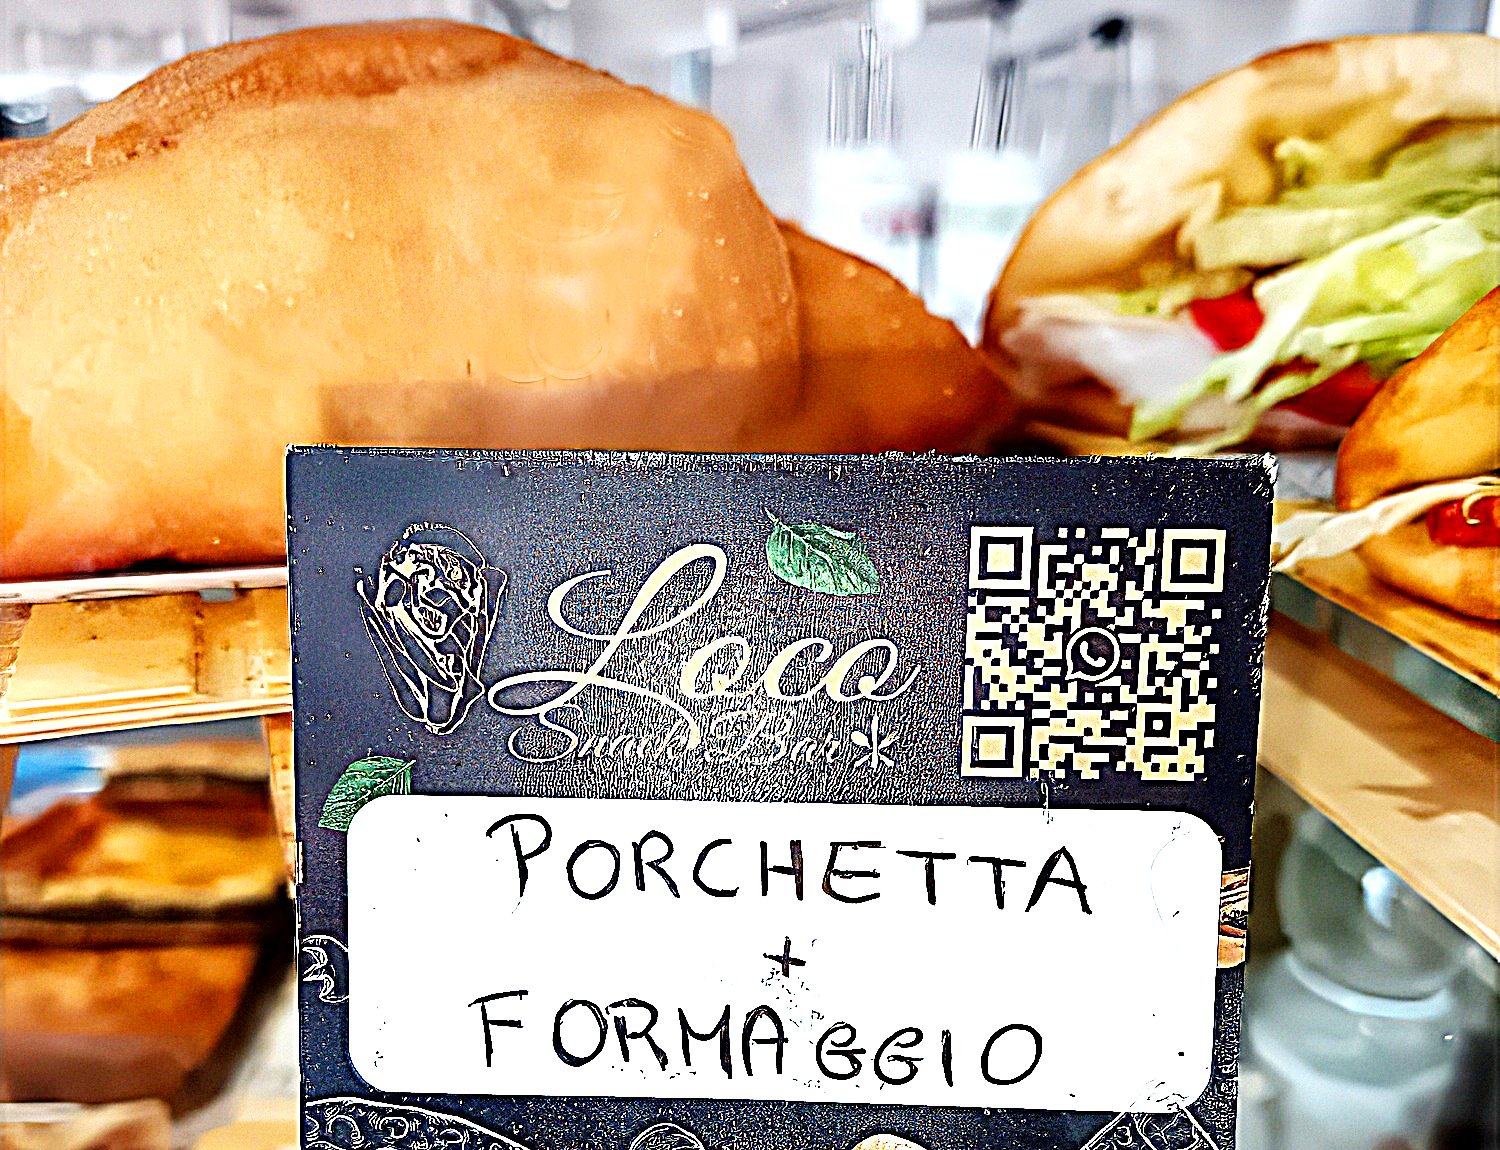 Loco
Snack Bar
PORCHETTA
+
FORMAGGIO